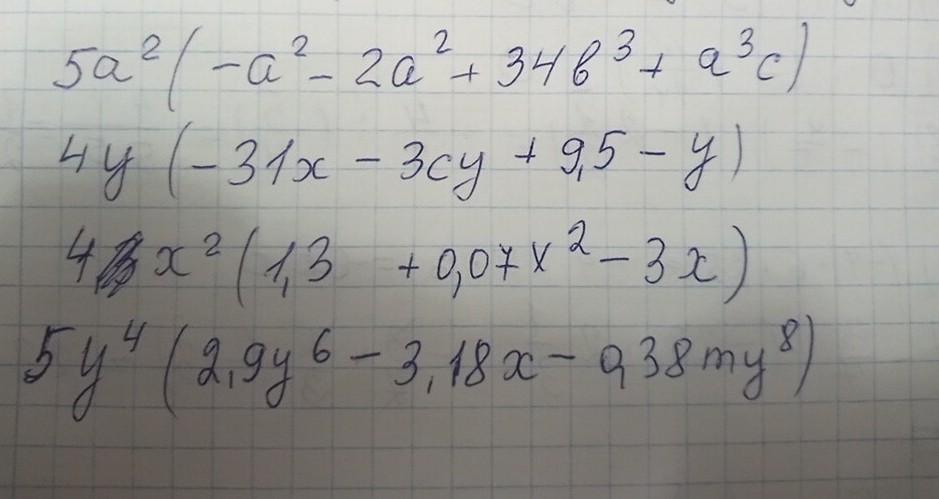 5a²(-a² - 2a² + 34в³ + a³c)
4y(-31x - 3cy + 9,5 - y)
4x²(1,3 + 0,07x² - 3x)
5y⁴(2,9y⁶ - 3,18x - 0,38my⁸)